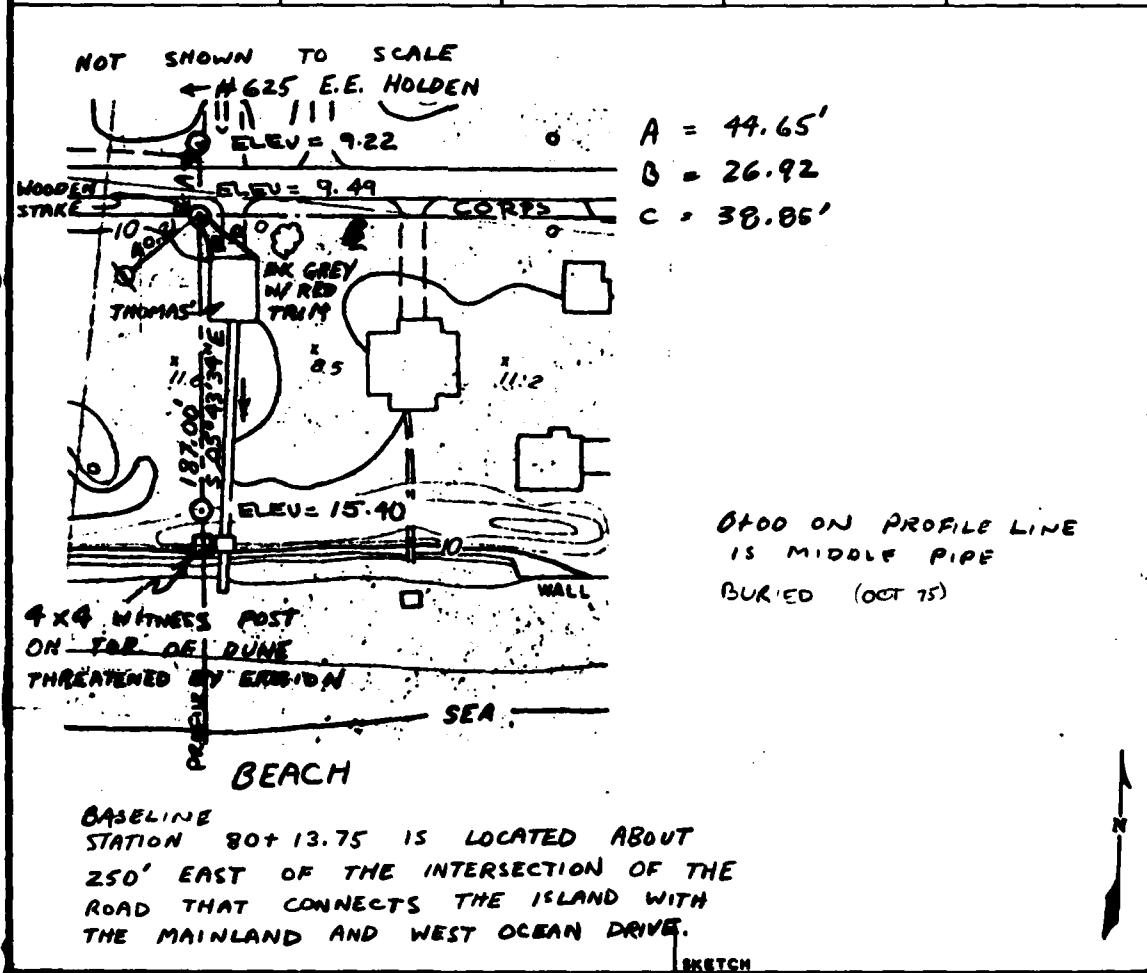 NOT SHOWN TO SCALE
← # 625 E.E. HOLDEN
ELEV = 9.22
A
ELEV = 9.49
WOODEN
STAKE
CORPS
10
DK GREY
W/ RED
TRIM
THOMAS'
x 11.
x 8.5
x 11.2
187.00'
S 05°43'34" E
ELEV = 15.40
10
WALL
4 x 4 WITNESS POST
ON TOP OF DUNE
THREATENED BY EROSION
SEA
BEACH
A = 44.65'
B = 26.92
C = 38.85'
0+00 ON PROFILE LINE
IS MIDDLE PIPE
BURIED (OCT 75)
N
BASELINE
STATION 80+13.75 IS LOCATED ABOUT
250' EAST OF THE INTERSECTION OF THE
ROAD THAT CONNECTS THE ISLAND WITH
THE MAINLAND AND WEST OCEAN DRIVE.
SKETCH